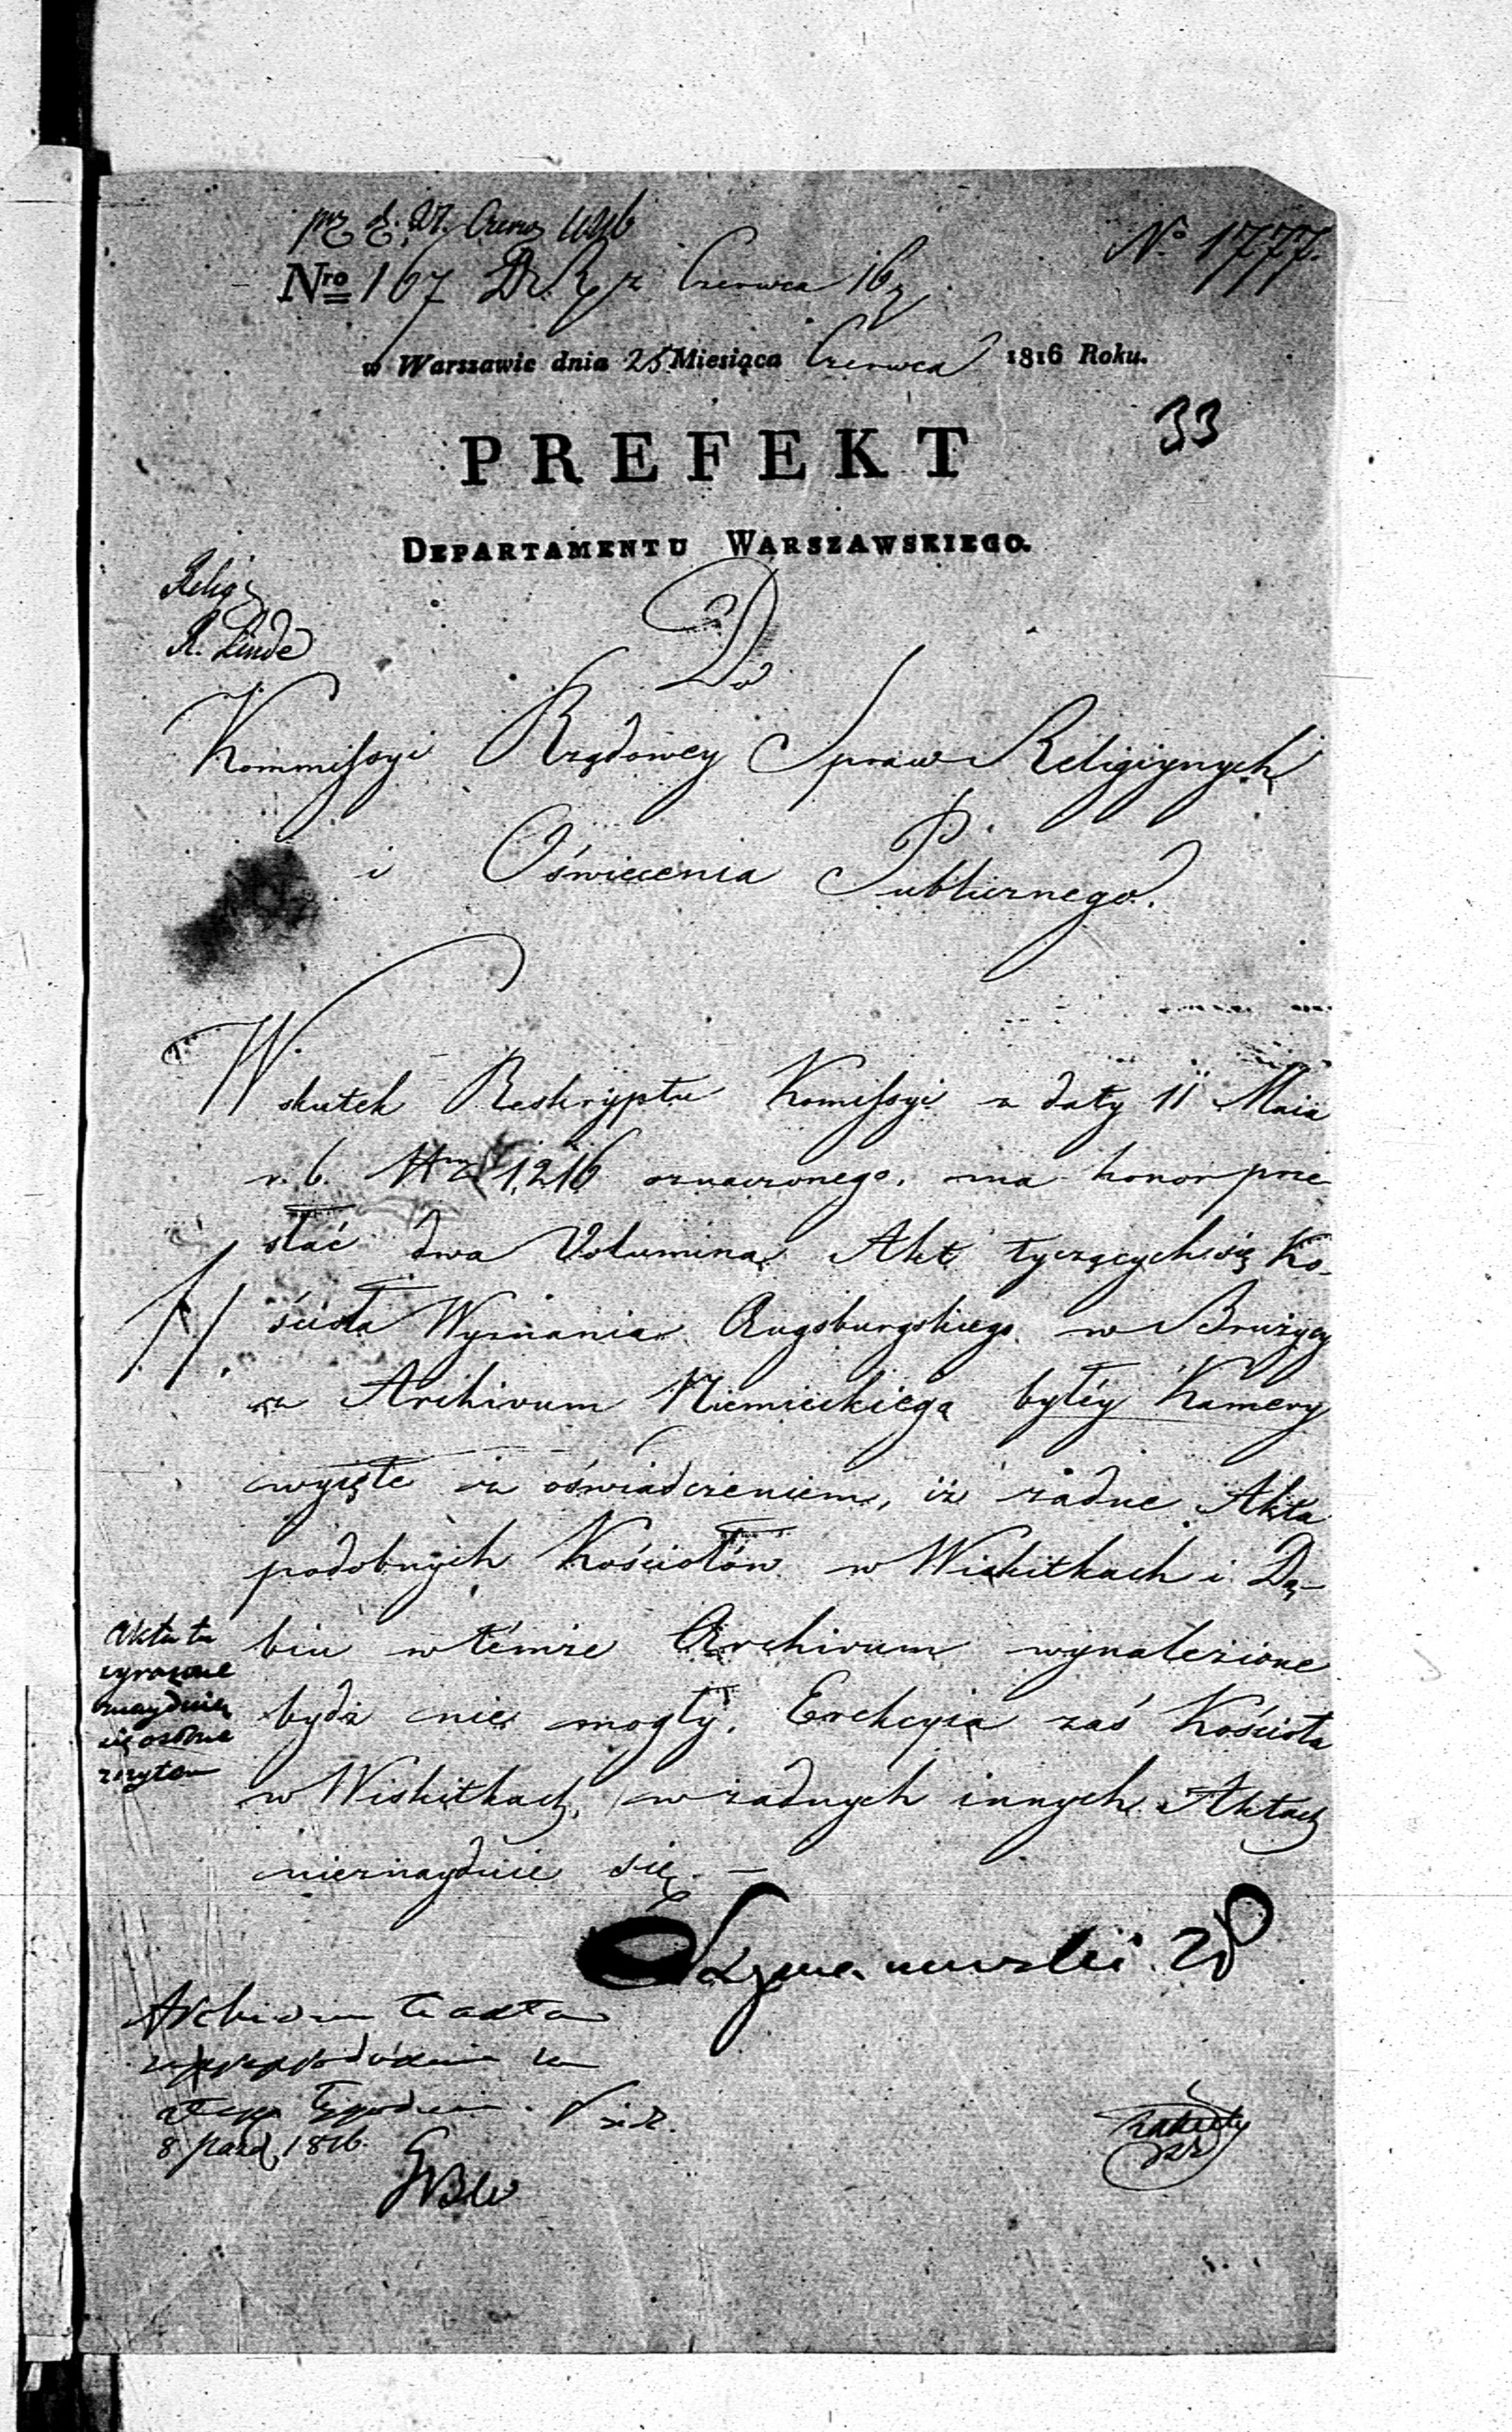 pr. d. 27. Czerw. 1816
No 1777.
Nro 167 z Czerwca 16
w Warszawie dnia 25 Miesiąca Czerwca 1816 Roku.
33
PREFEKT
DEPARTAMENTU WARSZAWSKIEGO.
Relig
R. Linde
Do
Kommissyi Rządowey Spraw Religiynych
i Oświecenia Publicznego.
W skutek Reskryptu Komissyi z daty 11 Maia
r. b. Nrm 1216 oznaczonego, ma honor prze
słać dwa Volumina Akt tyczących się Ko-
ścioła Wyznania Augsburgskiego w Brużycy
z Archivum Niemieckiego byłéy Kamery
wyięte z oświadczeniem, iż żadne Akta
podobnych Kościołów w Wiskitkach i Dą-
biu w témże Archivum wynalezione
bydź nie mogły. Erekcyia zaś Kościoła
w Wiskitkach, w żadnych innych Aktach
nieznayduie się. —
Akta te
wyrażone
znayduią
się osobno
zszyte
Szymanowski
Archivum te akta
8 Paźd. 1816.